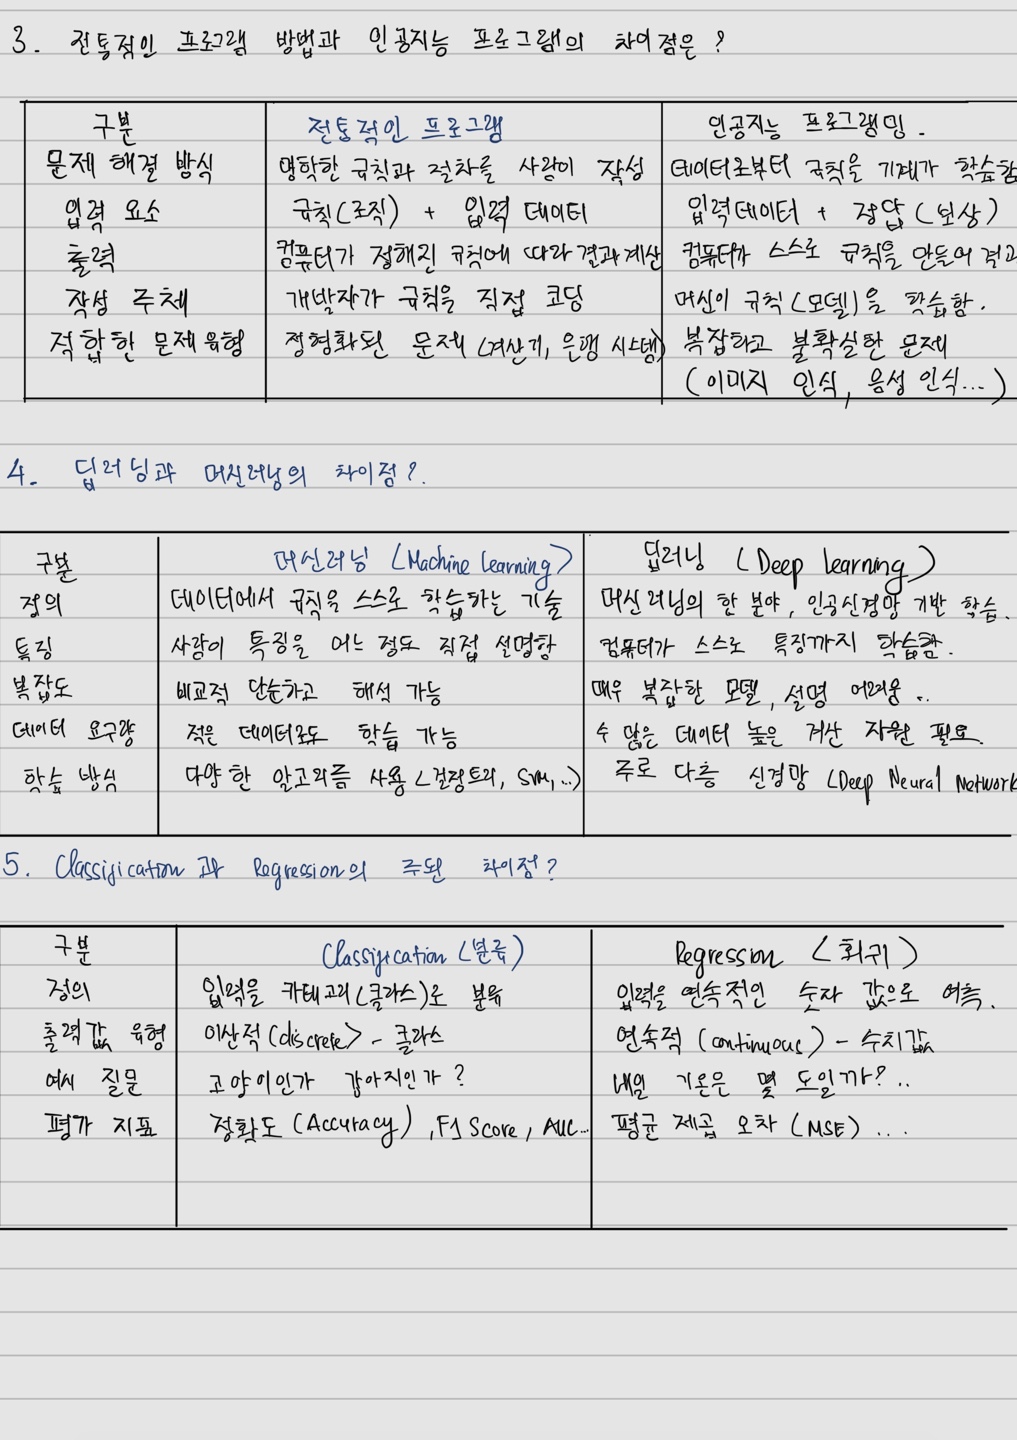 3. 전통적인 프로그램 방법과 인공지능 프로그램의 차이점은?
구분 전통적인 프로그램 인공지능 프로그래밍.
문제 해결 방식 명확한 규칙과 절차를 사람이 작성 데이터로부터 규칙을 기계가 학습함
입력 요소 규칙(로직) + 입력 데이터 입력데이터 + 정답(보상)
출력 컴퓨터가 정해진 규칙에 따라 결과계산 컴퓨터가 스스로 규칙을 만들어 결과
작성 주체 개발자가 규칙을 직접 코딩 머신이 규칙(모델)을 학습함.
적합한 문제 유형 정형화된 문제 (계산기, 은행 시스템) 복잡하고 불확실한 문제
(이미지 인식, 음성 인식...)
4. 딥러닝과 머신러닝의 차이점?.
구분 머신러닝 (Machine Learning) 딥러닝 (Deep Learning)
정의 데이터에서 규칙을 스스로 학습하는 기술 머신러닝의 한 분야, 인공신경망 기반 학습.
특징 사람이 특징을 어느 정도 직접 설명함 컴퓨터가 스스로 특징까지 학습함.
복잡도 비교적 단순하고 해석 가능 매우 복잡한 모델, 설명 어려움..
데이터 요구량 적은 데이터로도 학습 가능 수 많은 데이터 높은 계산 자원 필요.
학습 방식 다양한 알고리즘 사용 (결정트리, SVM,...) 주로 다층 신경망 (Deep Neural Network
5. Classification 과 Regression의 주된 차이점?
구분 Classification (분류) Regression (회귀)
정의 입력을 카테고리(클라스)로 분류 입력을 연속적인 숫자 값으로 예측.
출력값 유형 이산적(discrete) - 클라스 연속적 (continuous) - 수치값
예시 질문 고양이인가 강아지인가? 내일 기온은 몇 도일까?..
평가 지표 정확도 (Accuracy), F1 Score, AUC... 평균 제곱 오차 (MSE) ....